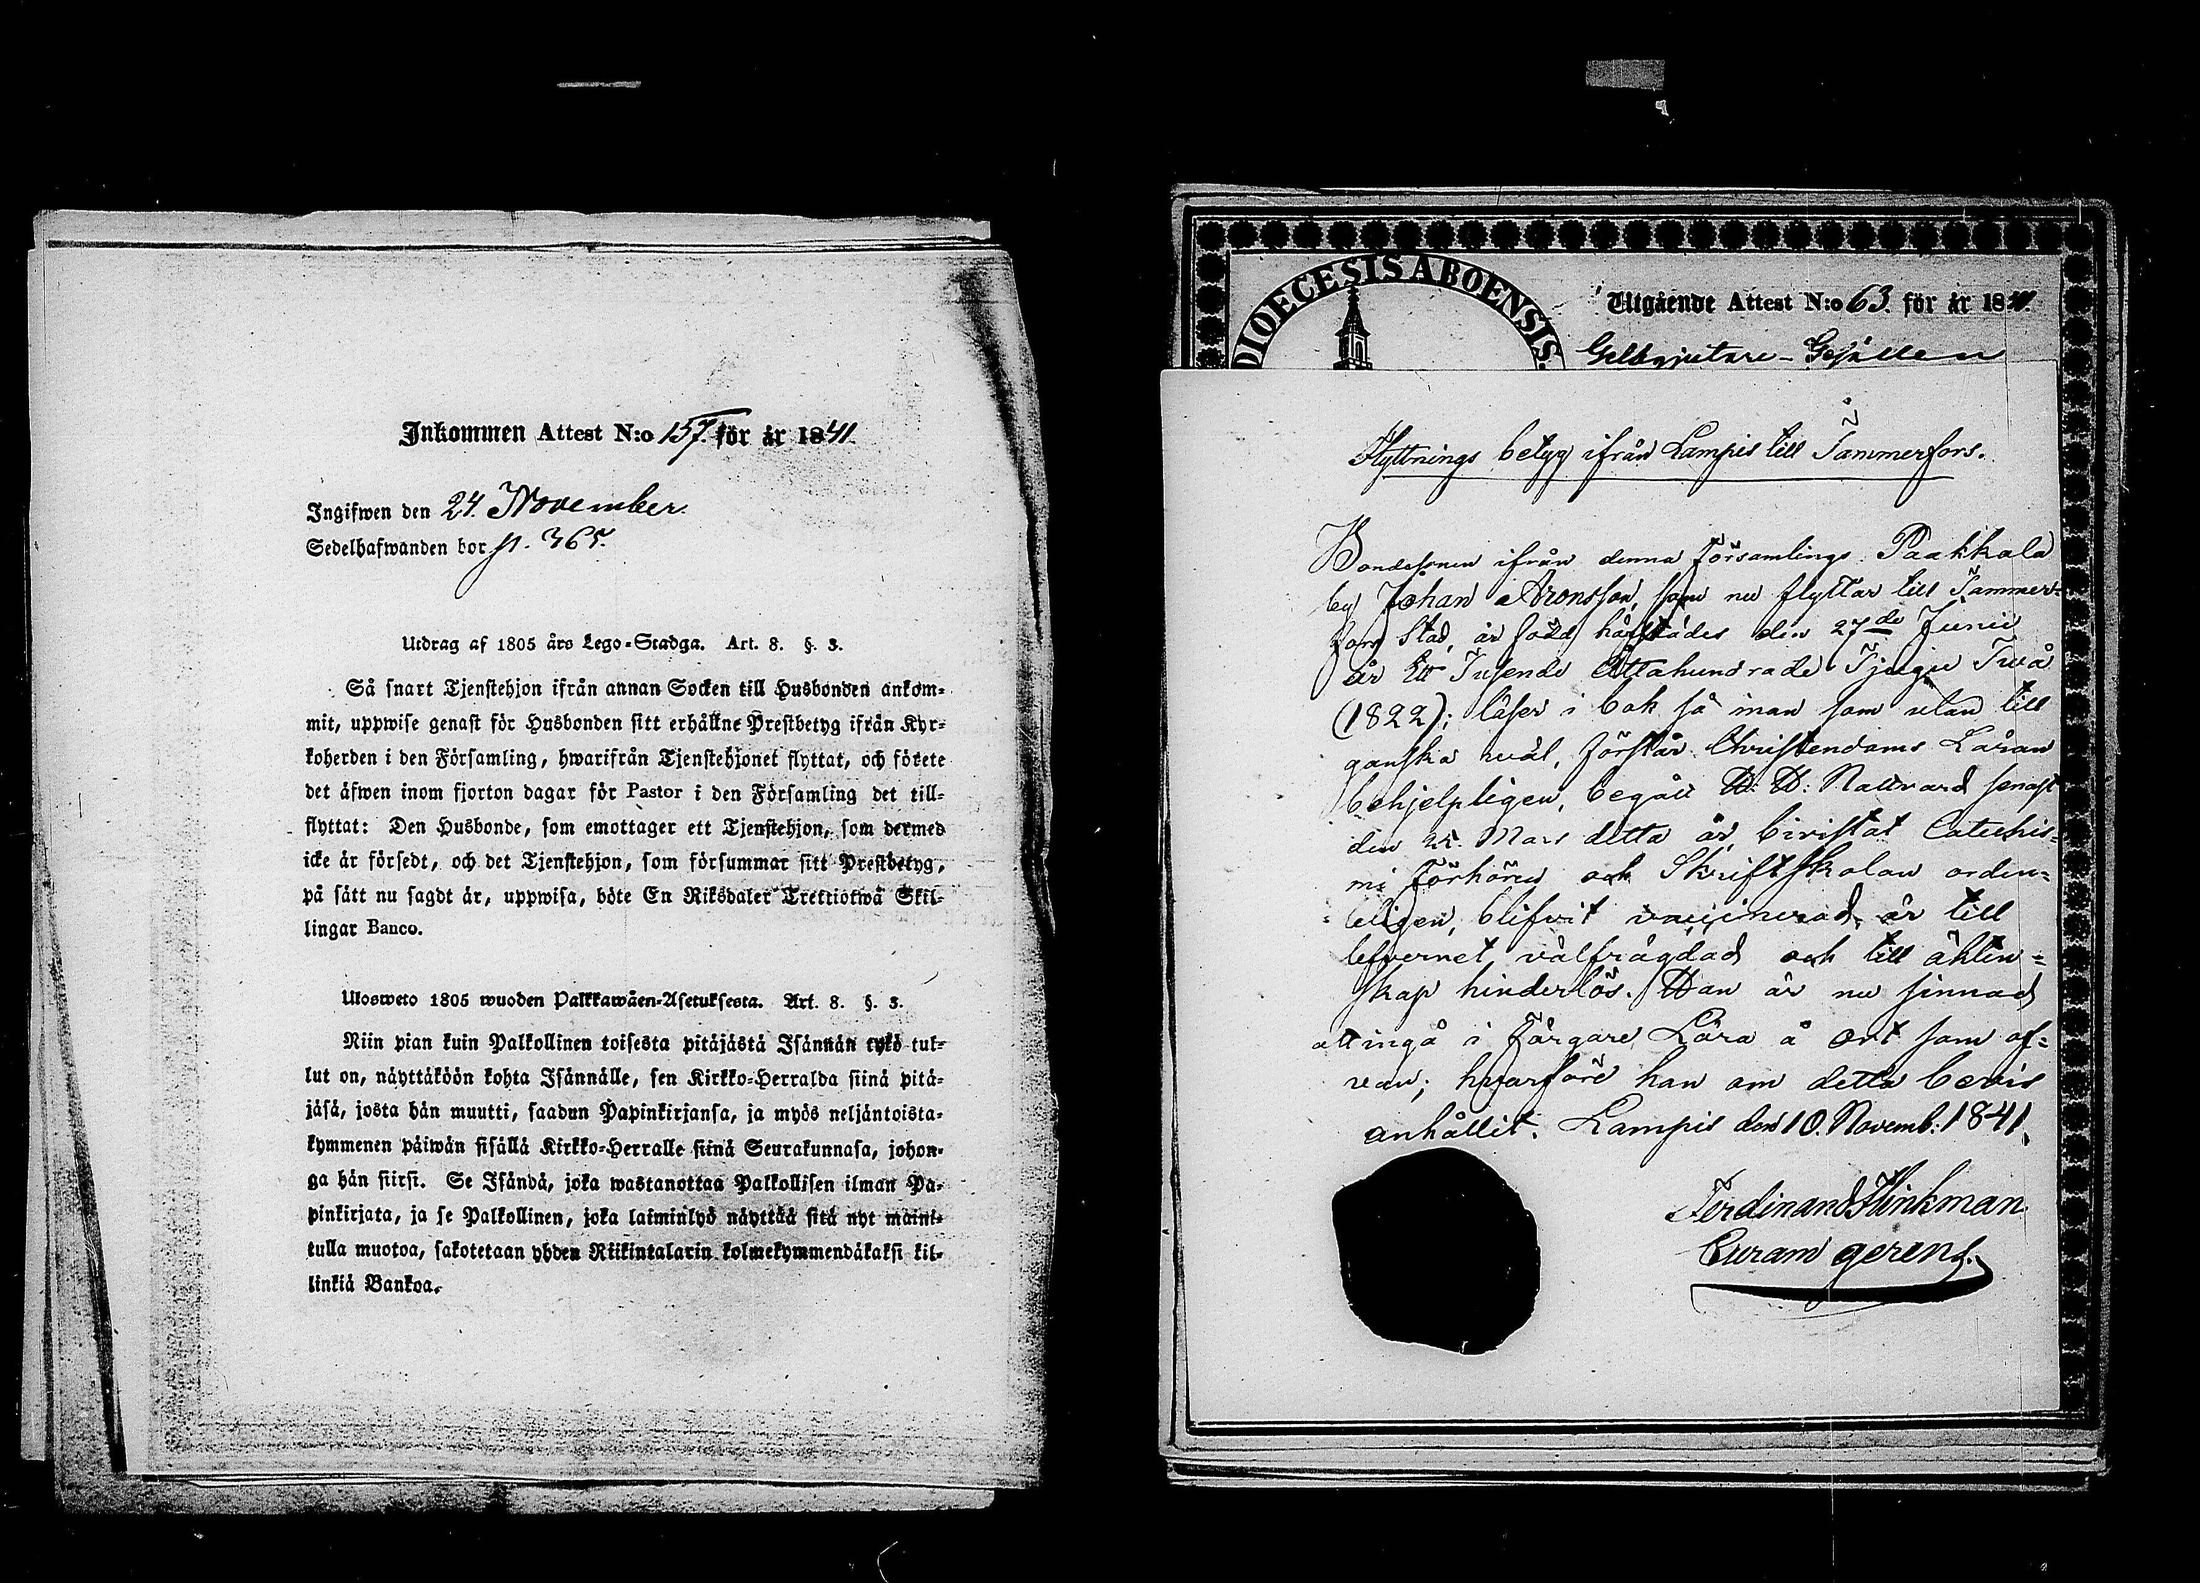 Inkommen Attest N:o 157. för år 1841.
Ingifwen den 24. November.
Sedelhafwanden bor p. 365.
Utdrag af 1805 års Lego-Stadga. Art. 8. §. 3.
Så snart Tjenstehjon ifrån annan Socken till Husbonden ankom-
mit, uppwise genast för Husbonden sitt erhållne Prestbetyg ifrån Kyr-
koherden i den Församling, hwarifrån Tjenstehjonet flyttat, och förete
det äfwen inom fjorton dagar för Pastor i den Församling det till-
flyttat: Den Husbonde, som emottager ett Tjenstehjon, som dermed
icke är försedt, och det Tjenstehjon, som försummar sitt Prestbetyg,
på sätt nu sagdt är, uppwisa, böte En Riksdaler Trettiotwå Skil-
lingar Banco.
Ulosweto 1805 wuoden Palkkawäen-Asetuksesta. Art. 8. §. 3.
Niin pian kuin Palkollinen toisesta pitäjästä Isännän tykö tul-
lut on, näyttäköön kohta Isännälle, sen Kirkko-Herralda siinä pitä-
jäsä, josta hän muutti, saadun Papinkirjansa, ja myös neljäntoista-
kymmenen päiwän sisällä Kirkko-Herralle siinä Seurakunnasa, johon-
ga hän siirsi. Se Isändä, joka wastanottaa Palkollisen ilman Pa-
pinkirjata, ja se Palkollinen, joka laiminlyö näyttää sitä nyt maini-
tulla muotoa, sakotetaan yhden Riikintalarin kolmekymmendäkaksi kil-
linkiä Bankoa.
DIOECESIS ABOENSIS.
Utgående Attest N:o 63. för år 1841.
Gelbgjutare-Gesällen
Flyttnings betyg ifrån Lampis till Tammerfors.
Bondesonen ifrån denna Församlings Paakkala
by Johan Aronsson, som nu flyttar till Tammer-
fors Stad, är född härstädes den 27de Junii
år Ett Tusende Åttahundrade Tjugu Två
(1822); läser i bok så innan som utan till
ganska väl, förstår Christendoms Läran
behjelpligen, begått H. H. Nattvard senast
den 25. Mars detta år, bivistat Catechis-
mi Förhören och Skriftskolan orden-
teligen, blifvit vaccinerad, är till
lefvernet välfrägdad och till äkten-
skap hinderlös. Han är nu sinnad
att ingå i Färgare Lära å Ort som of-
van; hvarföre han om detta bevis
anhållit. Lampis den 10. Novemb: 1841.
Ferdinand Hinkman
Curam gerens.